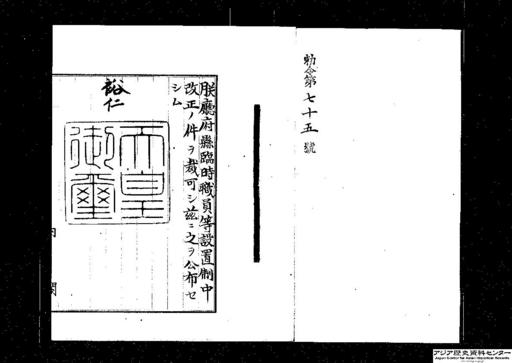 勅令第七十五號
朕廳府縣臨時職員等設置制中
改正ノ件ヲ裁可シ茲ニ之ヲ公布セ
シム
裕仁
天皇
御璽
内
閣
アジア歴史資料センター
Japan Center for Asian Historical Records